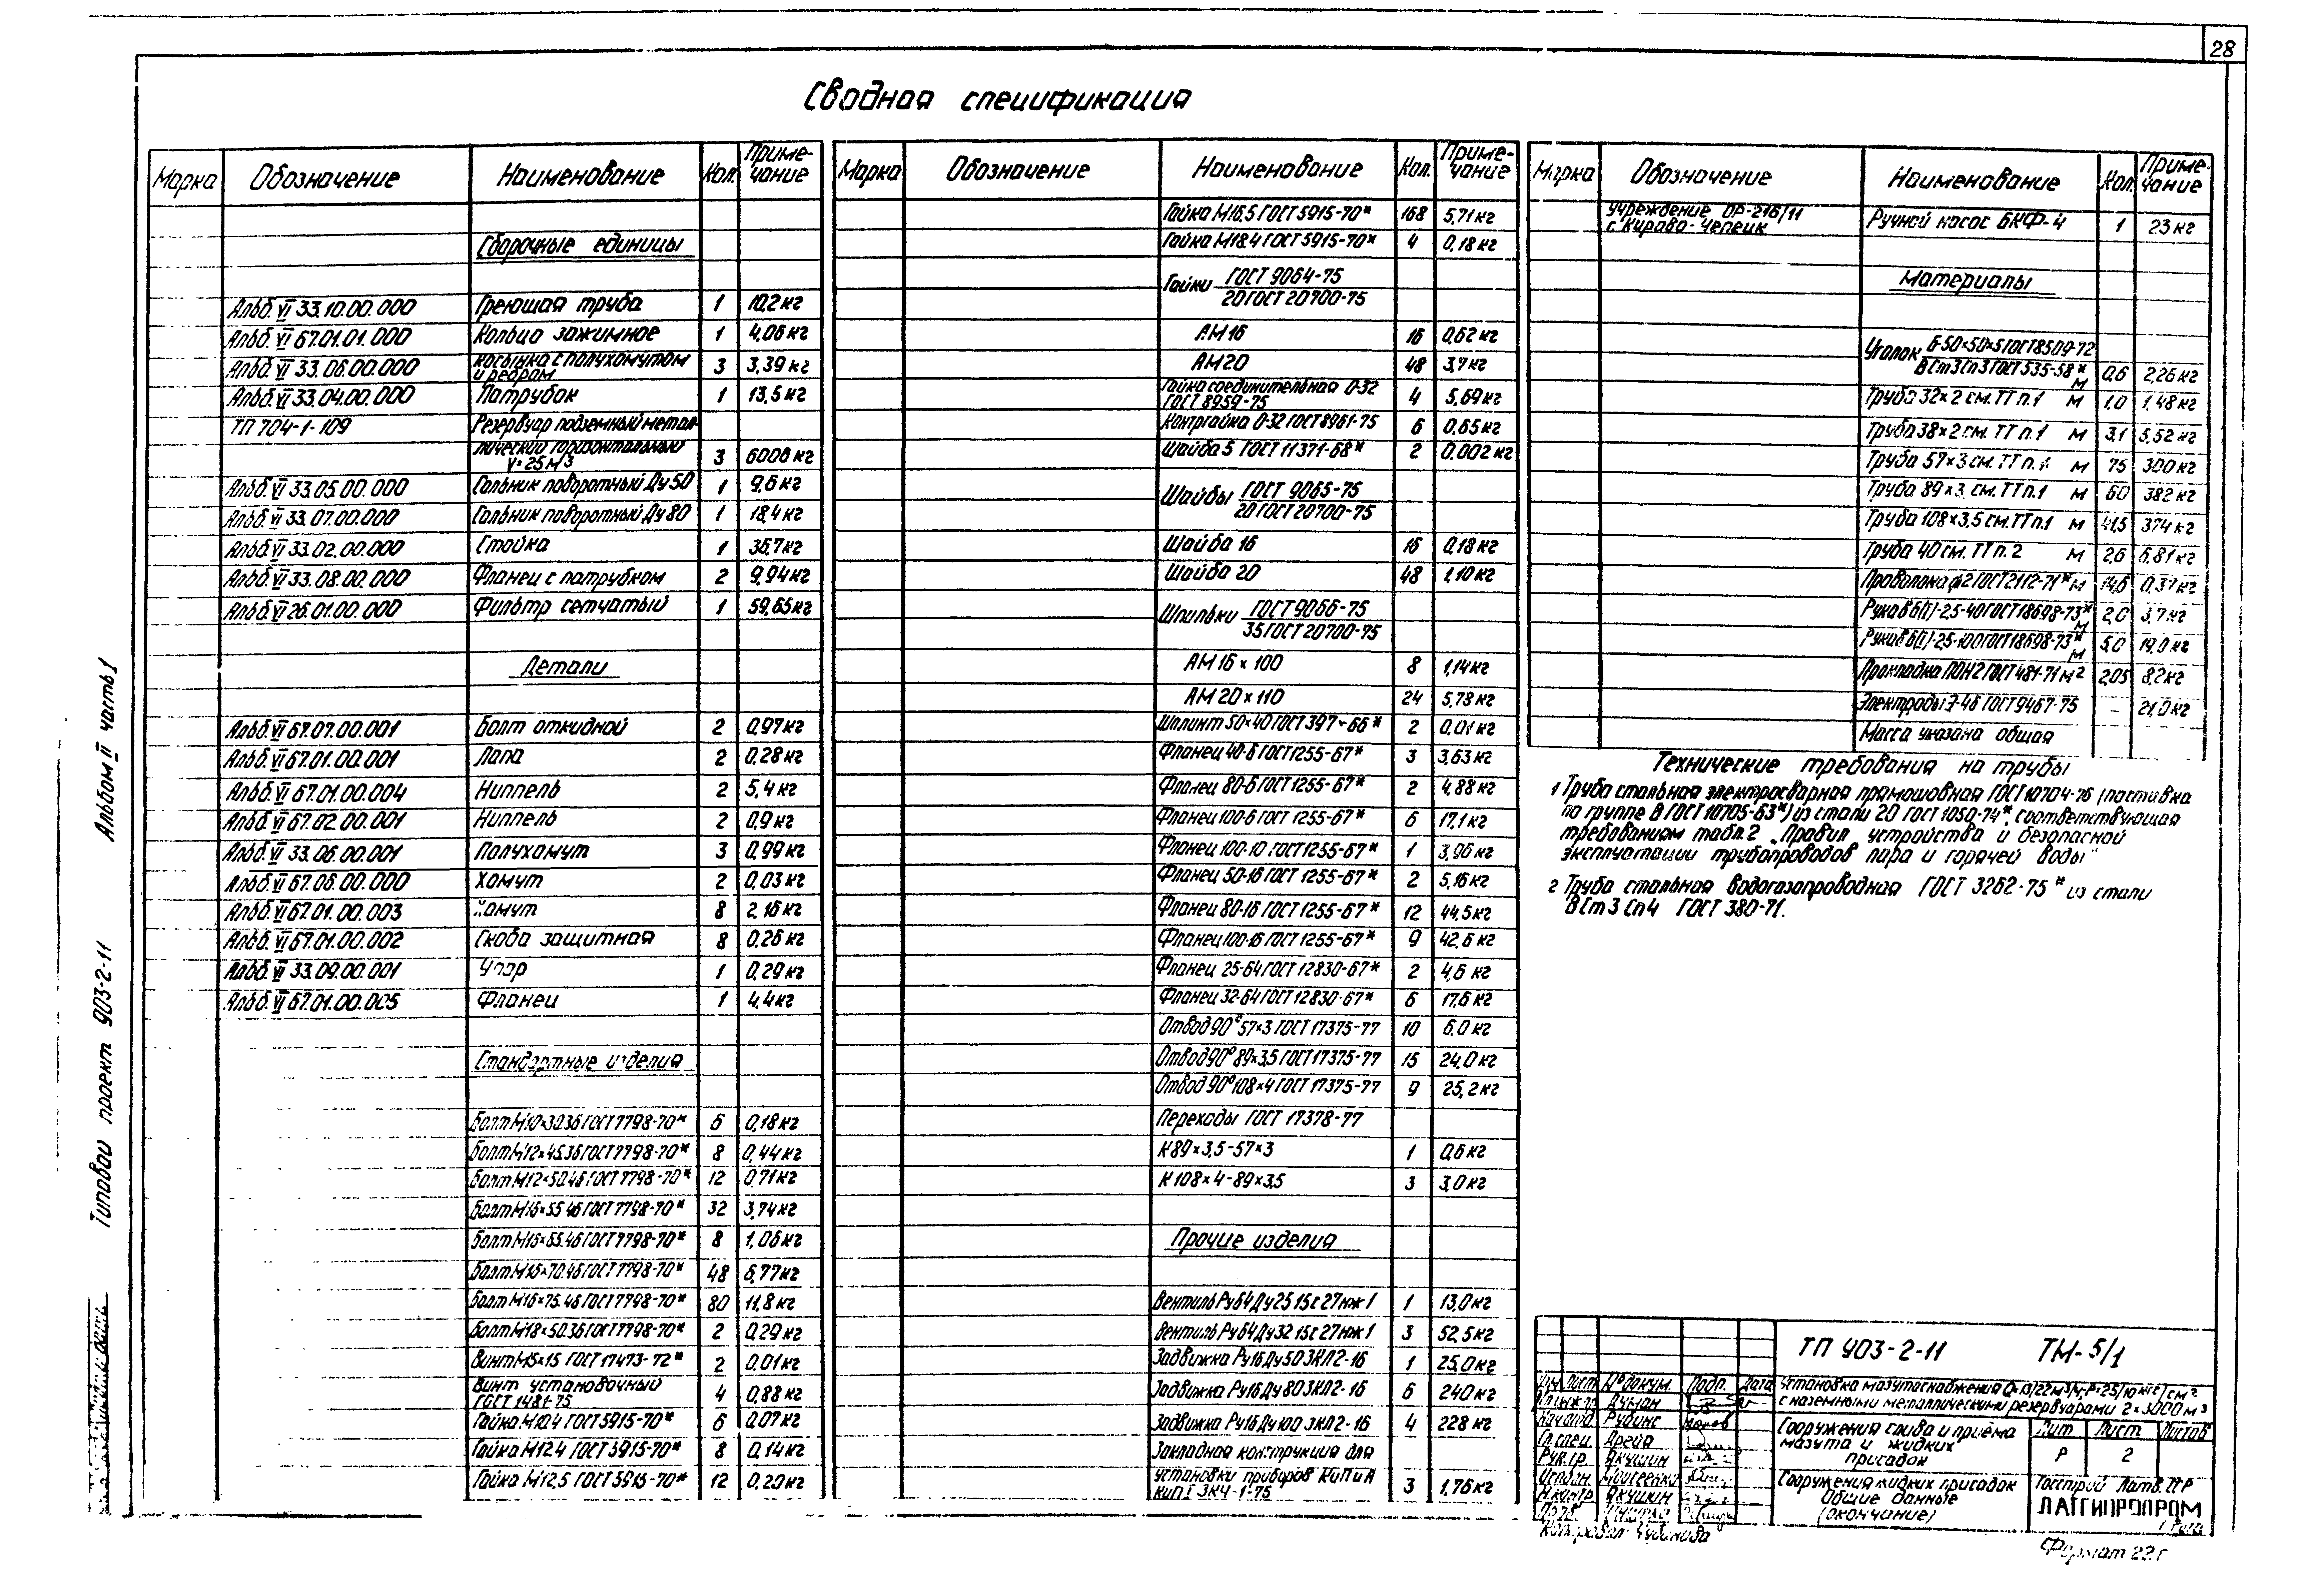 28
Сводная спецификация
Марка Обозначение Наименование Кол. Приме-чание
Сборочные единицы
Альб. VI 33.10.00.000 Греющая труба 1 10,2 кг
Альб. VI 67.01.01.000 Кольцо зажимное 1 4,06 кг
Альб. VI 33.06.00.000 Косынка с полухомутом и ребром 3 3,39 кг
Альб. VI 33.04.00.000 Патрубок 1 13,5 кг
ТП 704-1-109 Резервуар подземный метал-
лический горизонтальный V=25 м3 3 6006 кг
Альб. VI 33.05.00.000 Сальник поворотный Ду 50 1 9,6 кг
Альб. VI 33.07.00.000 Сальник поворотный Ду 80 1 18,4 кг
Альб. VI 33.02.00.000 Стойка 1 36,7 кг
Альб. VI 33.08.00.000 Фланец с патрубком 2 9,94 кг
Альб. VI 26.01.00.000 Фильтр сетчатый 1 59,65 кг
Детали
Альб. VI 67.07.00.001 Болт откидной 2 0,97 кг
Альб. VI 67.01.00.001 Лапа 2 0,28 кг
Альб. VI 67.01.00.004 Ниппель 2 5,4 кг
Альб. VI 67.02.00.001 Ниппель 2 0,9 кг
Альб. VI 33.06.00.001 Полухомут 3 0,99 кг
Альб. VI 67.06.00.000 Хомут 2 0,03 кг
Альб. VI 67.01.00.003 Хомут 8 2,16 кг
Альб. VI 67.01.00.002 Скоба защитная 8 0,26 кг
Альб. VI 33.09.00.001 Упор 1 0,29 кг
Альб. VI 67.01.00.005 Фланец 1 4,4 кг
Стандартные изделия
Болт М10×30.36 ГОСТ 7798-70* 6 0,18 кг
Болт М12×45.36 ГОСТ 7798-70* 8 0,44 кг
Болт М12×50.46 ГОСТ 7798-70* 12 0,71 кг
Болт М16×55.46 ГОСТ 7798-70* 32 3,74 кг
Болт М16×65.46 ГОСТ 7798-70* 8 1,06 кг
Болт М16×70.46 ГОСТ 7798-70* 48 6,77 кг
Болт М16×75.46 ГОСТ 7798-70* 80 11,8 кг
Болт М18×50.36 ГОСТ 7798-70* 2 0,29 кг
Винт М5×15 ГОСТ 17473-72* 2 0,01 кг
Винт установочный ГОСТ 1481-75 4 0,88 кг
Гайка М10.4 ГОСТ 5915-70* 6 0,07 кг
Гайка М12.4 ГОСТ 5915-70* 8 0,14 кг
Гайка М12,5 ГОСТ 5915-70* 12 0,20 кг
Марка Обозначение Наименование Кол. Приме-чание
Гайка М16.5 ГОСТ 5915-70* 168 5,71 кг
Гайка М18.4 ГОСТ 5915-70* 4 0,18 кг
Гайки ГОСТ 9064-75
20 ГОСТ 20700-75
АМ16 16 0,62 кг
АМ20 48 3,7 кг
Гайка соединительная 0-32 ГОСТ 8959-75 4 5,69 кг
Контргайка 0-32 ГОСТ 8961-75 6 0,65 кг
Шайба 5 ГОСТ 11371-68* 2 0,002 кг
Шайбы ГОСТ 9065-75
20 ГОСТ 20700-75
Шайба 16 16 0,18 кг
Шайба 20 48 1,10 кг
Шпильки ГОСТ 9066-75
35 ГОСТ 20700-75
АМ 16 × 100 8 1,14 кг
АМ 20 × 110 24 5,78 кг
Шплинт 50×40 ГОСТ 397-66* 2 0,01 кг
Фланец 40-6 ГОСТ 1255-67* 3 3,63 кг
Фланец 80-6 ГОСТ 1255-67* 2 4,88 кг
Фланец 100-6 ГОСТ 1255-67* 6 17,1 кг
Фланец 100-10 ГОСТ 1255-67* 1 3,96 кг
Фланец 50-16 ГОСТ 1255-67* 2 5,16 кг
Фланец 80-16 ГОСТ 1255-67* 12 44,5 кг
Фланец 100-16 ГОСТ 1255-67* 9 42,6 кг
Фланец 25-64 ГОСТ 12830-67* 2 4,6 кг
Фланец 32-64 ГОСТ 12830-67* 6 17,6 кг
Отвод 90° 57×3 ГОСТ 17375-77 10 6,0 кг
Отвод 90° 89×3,5 ГОСТ 17375-77 15 24,0 кг
Отвод 90° 108×4 ГОСТ 17375-77 9 25,2 кг
Переходы ГОСТ 17378-77
К 89×3,5-57×3 1 0,6 кг
К 108×4-89×3,5 3 3,0 кг
Прочие изделия
Вентиль Ру64 Ду25 15с27нж1 1 13,0 кг
Вентиль Ру64 Ду32 15с27нж1 3 52,5 кг
Задвижка Ру16 Ду50 ЗКЛ2-16 1 25,0 кг
Задвижка Ру16 Ду80 ЗКЛ2-16 6 240 кг
Задвижка Ру16 Ду100 ЗКЛ2-16 4 228 кг
Закладная конструкция для
установки приборов КиПиА 3К4-1-75 3 1,76 кг
Марка Обозначение Наименование Кол. Приме-чание
Учреждение ОР-216/11 г. Кирово-Чепецк Ручной насос БКФ-4 1 23 кг
Материалы
Уголок Б-50×50×5 ГОСТ 8509-72
ВСт3Сп3 ГОСТ 535-58* м 0,6 2,26 кг
Труба 32×2 см. ТТ п.1 м 1,0 1,48 кг
Труба 38×2 см. ТТ п.1 м 3,1 5,52 кг
Труба 57×3 см. ТТ п.1 м 75 300 кг
Труба 89×3 см. ТТ п.1 м 60 382 кг
Труба 108×3,5 см. ТТ п.1 м 41,5 374 кг
Труба 40 см. ТТ п. 2 м 2,6 6.81 кг
Проволока ф2 ГОСТ 2112-71* м 14,6 0,37 кг
Рукав Б(I)-2,5-40 ГОСТ 18698-73* м 2,0 3,7 кг
Рукав Б(I)-2,5-100 ГОСТ 18698-73* м 5,0 19,0 кг
Прокладка ПОН2 ГОСТ 481-71 м2 2,05 8,2 кг
Электроды Э-46 ГОСТ 9467-75 - 21,0 кг
Масса указана общая
Технические требования на трубы
1 Труба стальная электросварная прямошовная ГОСТ 10704-76 (поставка
по группе В ГОСТ 10705-63*) из стали 20 ГОСТ 1050-74*, соответствующая
требованиям табл. 2 „Правил устройства и безопасной
эксплуатации трубопроводов пара и горячей воды"
2 Труба стальная водогазопроводная ГОСТ 3262-75* из стали
ВСт3 Сп4 ГОСТ 380-71.
ТП 903-2-11 ТМ-5/1
Изм Лист № докум. Подп. Дата
Нач. отд. Рудинс
Гл. спец. Арейя
Рук. гр. Якушин
Исполн. Моисеенко
Н. контр. Якушин
Установка мазутоснабжения Q=13/22 м3/ч, P=25/10 кгс/см2
с наземными металлическими резервуарами 2×3000 м3
Сооружения слива и приема
мазута и жидких
присадок
Лит Лист Листов
Р 2
Сооружения жидких присадок
Общие данные
(окончание)
Госстрой Латв. ССР
ЛАТГИПРОПРОМ
г. Рига
Формат 22г
Типовой проект 903-2-11 Альбом II часть 1